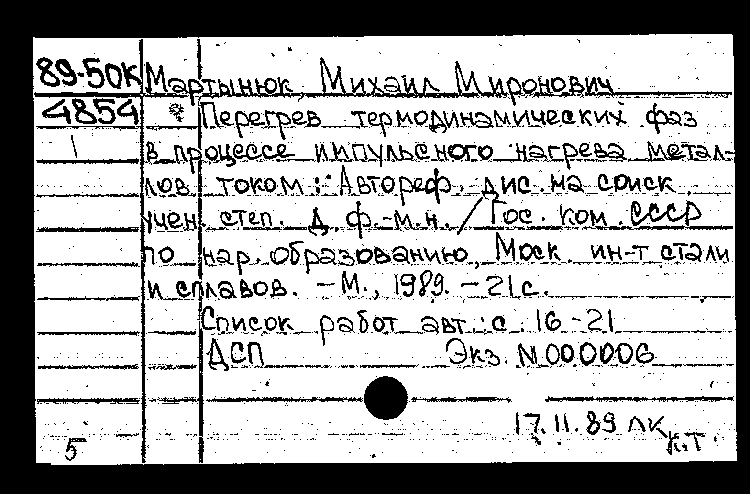 89-50К Мартынюк, Михаил Миронович
4854 * Перегрев термодинамических фаз
1 в процессе импульсного нагрева метал-
лов током: Автореф. дис. на соиск.
учен. степ. д. ф.-м.н. / Гос. ком. СССР
по нар. образованию, Моск. ин-т стали
и сплавов. – М., 1989. – 21 с.
Список работ авт.: с. 16-21
ДСП Экз. N 000006
17.11.89 ЛК
К.Т.
5